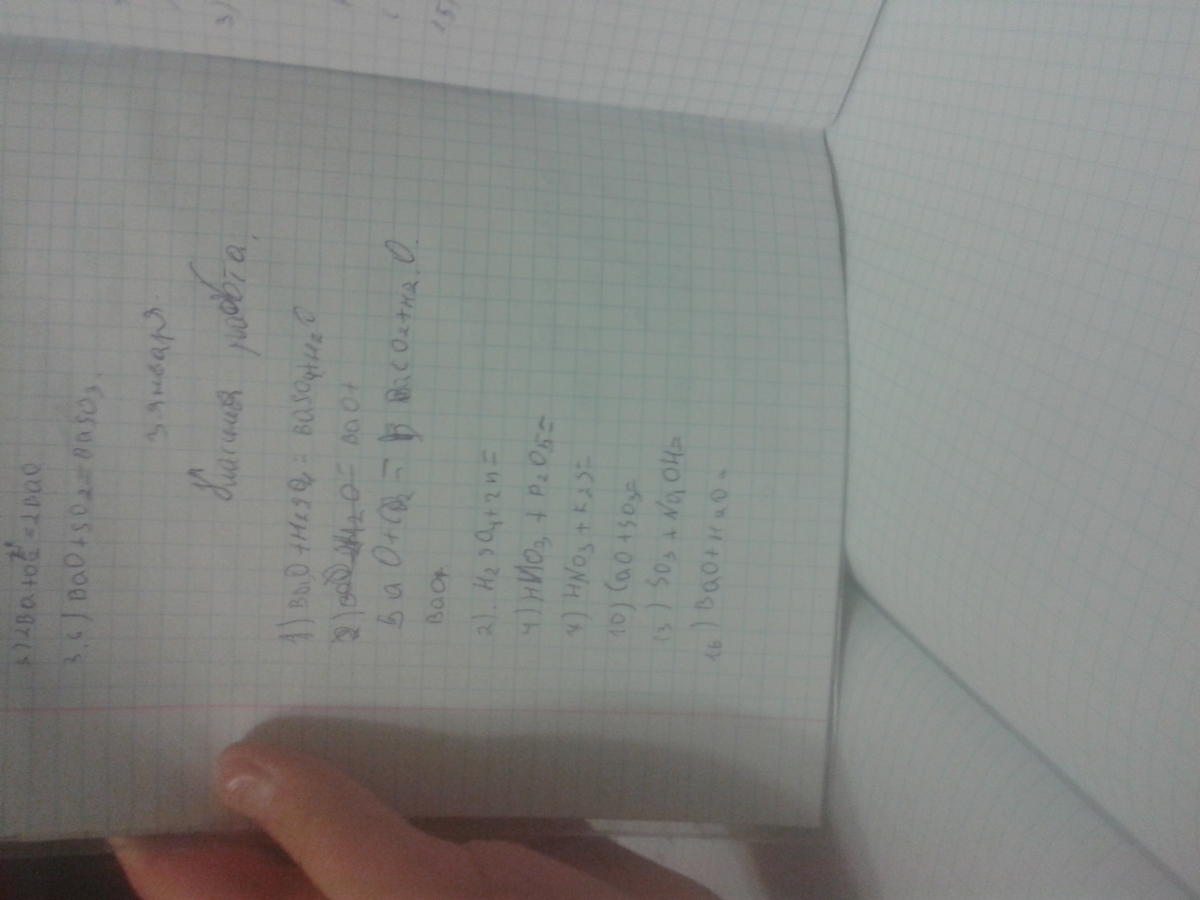 3)
15)
3) 2Ba+O2=2BaO
3.6) BaO+SO2=BaSO3.
3 января.
Класна робота.
1) BaO+H2SO4=BaSO4+H2O
2) BaO+H2O= BaO+
BaO+CO2= BaCO2+H2O
BaO+
2). H2SO4+Zn=
4) HNO3+P2O5=
7) HNO3+K2S=
10) CaO+SO3=
13) SO3+NaOH=
16) BaO+H2O=